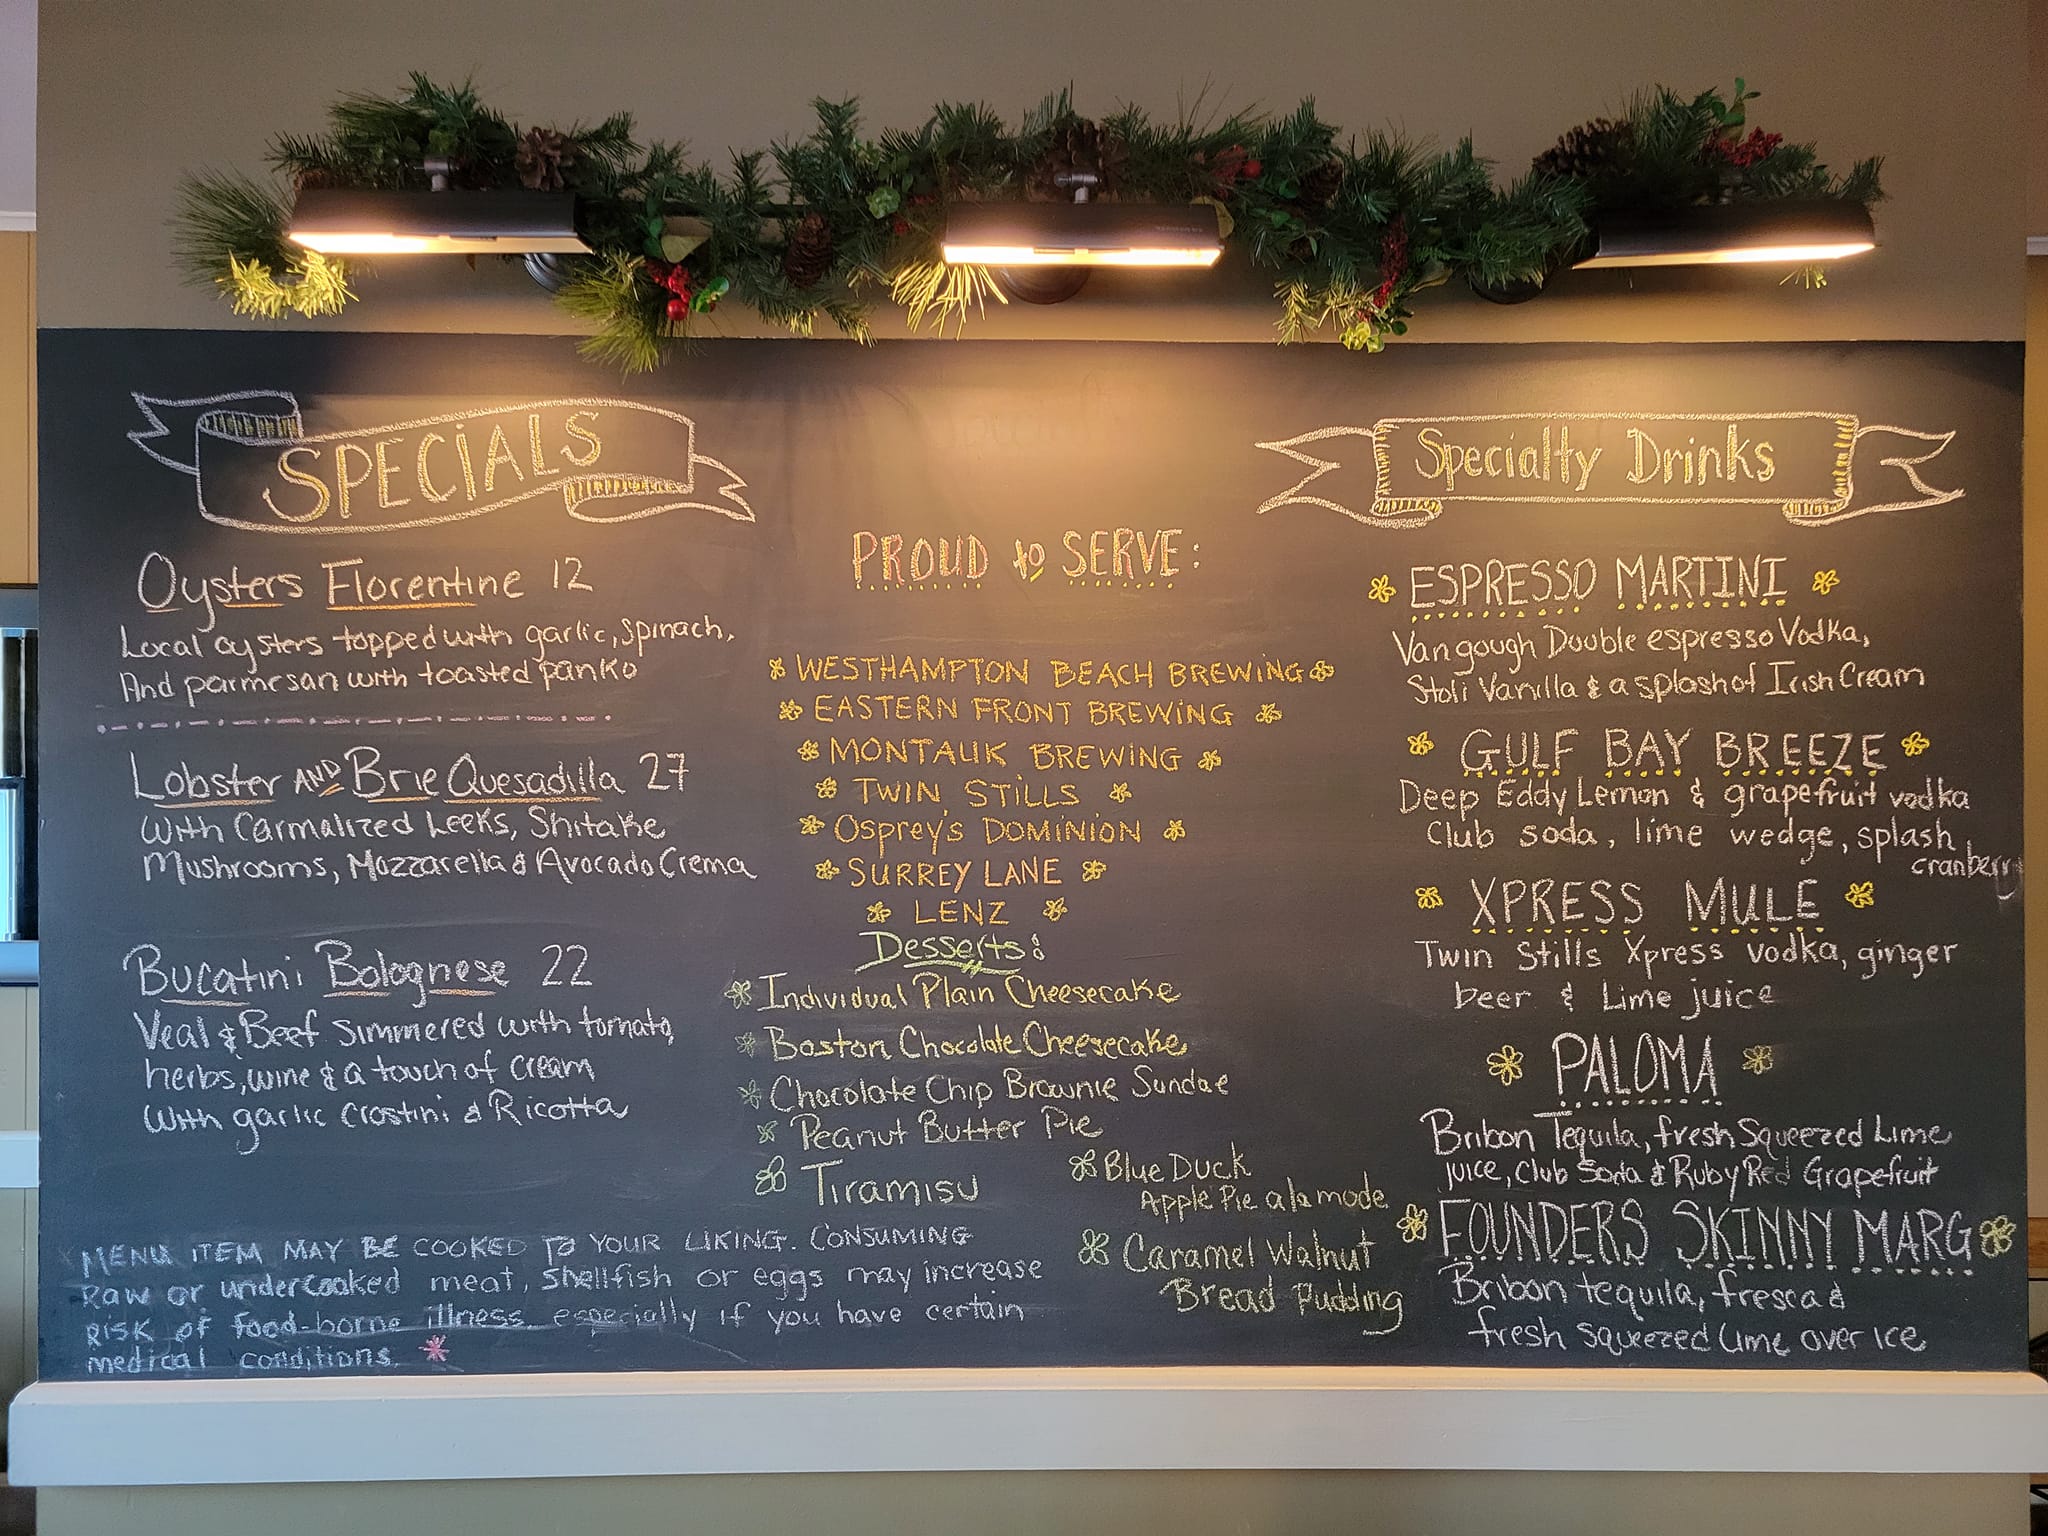 SPECIALS
Oysters Florentine 12
Local oysters topped with garlic, spinach,
And parmesan with toasted panko
Lobster AND Brie Quesadilla 27
with Carmalized Leeks, Shitake
Mushrooms, Mozzarella & Avocado Crema
Bucatini Bolognese 22
Veal & Beef simmered with tomato,
herbs, wine & a touch of cream
with garlic crostini & Ricotta
MENU ITEM MAY BE COOKED TO YOUR LIKING. CONSUMING
RAW or undercooked meat, shellfish or eggs may increase
RISK OF food-borne illness, especially if you have certain
medical conditions. *
PROUD to SERVE:
WESTHAMPTON BEACH BREWING
EASTERN FRONT BREWING
MONTAUK BREWING
TWIN STILLS
OSPREY'S DOMINION
SURREY LANE
LENZ
Desserts:
Individual Plain Cheesecake
Boston Chocolate Cheesecake
Chocolate Chip Brownie Sundae
Peanut Butter Pie
Tiramisu
Blue Duck
Apple Pie a la mode
Caramel Walnut
Bread Pudding
Specialty Drinks
ESPRESSO MARTINI
Vangough Double espresso Vodka,
Stoli Vanilla & a splash of Irish Cream
GULF BAY BREEZE
Deep Eddy Lemon & grapefruit vodka
Club soda, lime wedge, splash
cranberry
XPRESS MULE
Twin Stills Xpress vodka, ginger
beer & Lime juice
PALOMA
Bribon Tequila, fresh Squeezed Lime
juice, Club Soda & Ruby Red Grapefruit
FOUNDERS SKINNY MARG
Bribon tequila, fresca &
fresh squeezed lime over ice